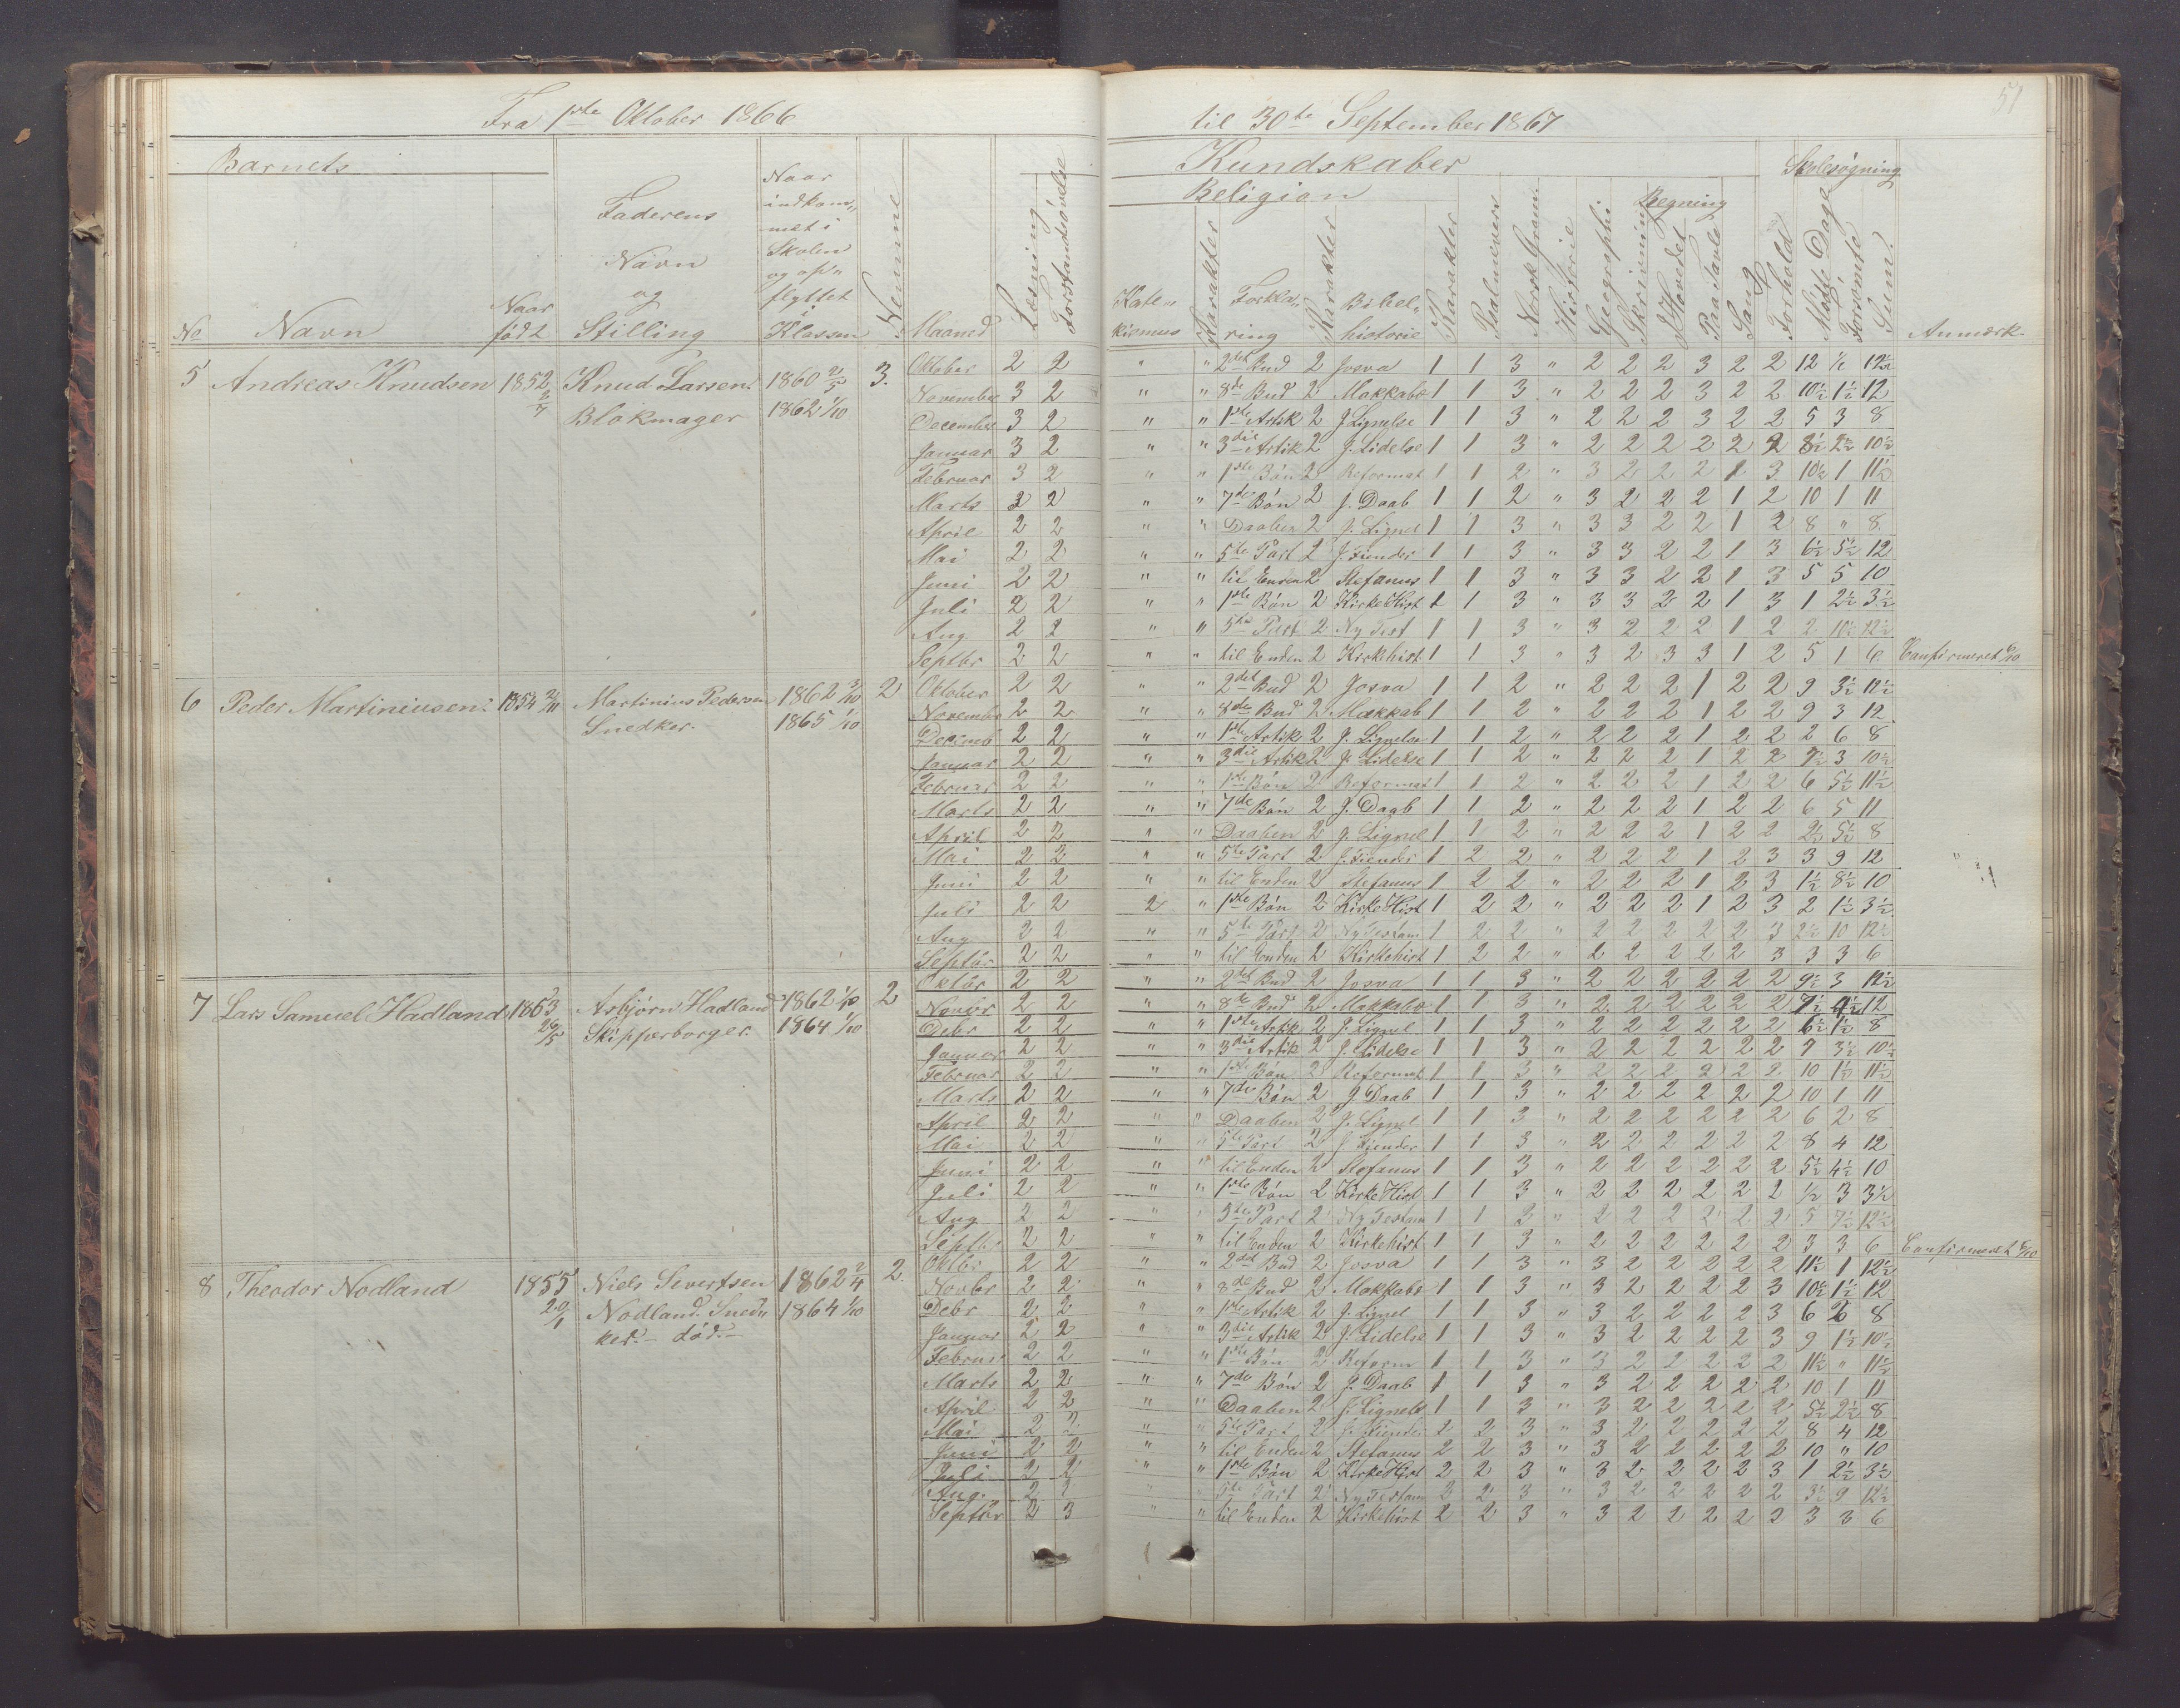 51
Fra 1ste Oktober 1866 til 30te September 1867
Barnets
Kundskaber
Skolesøgning
Religion
Regning
No
Navn
Naar født
Faderens Navn og Stilling
Naar indkommet i Skolen og opflyttet i Klassen
Nemme
Maaned
Læsning
Forstandsøvelse
Katekismus
Karakter
Forklaring
Karakter
Bibelhistorie
Karakter
Psalmevers
Norsk Gram.
Historie
Geographi
Skrivning
I Hovedet
Paa Tavle
Sang
Forhold
Mødte Dage
Forsømte
Sum.
Anmærk.
5 Andreas Knudsen 1852 2/7 Knud Larsen. 1860 2/5 3.
Blokmager 1862 1/10
Oktober 2 2 " " 2det Bud 2 Josva 1 1 3 " 2 2 2 3 2 2 12 ½ 12½
November 3 2 " " 8de Bud 2 Makkabæ 1 1 3 " 2 2 2 3 2 2 10½ 1½ 12
December 3 2 " " 1ste Artik 2 J. Lignelse 1 1 3 " 2 2 2 3 2 2 5 3 8
Januar 3 2 " " 3die Artik 2 J. Lidelse 1 1 3 " 2 2 2 2 2 2 8½ 2½ 10½
Februar 3 2 " " 1ste Bøn 2 Reformat 1 1 2 " 3 2 2 2 1 3 10½ 1 11½
Marts 3 2 " " 7de Bøn 2 J. Daab 1 1 2 " 3 2 2 2 1 2 10 1 11
April 2 2 " " Daaben 2 J. Lignel 1 1 3 " 3 3 2 2 1 2 8 " 8
Mai 2 2 " " 5te Part 2 J. Fiender 1 1 3 " 3 3 2 2 1 3 6½ 5½ 12
Juni 2 2 " " til Enden 2 Stefanus 1 1 3 " 3 3 2 2 1 3 5 5 10
Juli 2 2 " " 1ste Bøn 2 Kirke Hist 1 1 3 " 3 3 2 2 1 3 1 2½ 3½
Aug. 2 2 " " 5te Part 2 Ny Test 1 1 3 " 3 2 2 2 1 2 2 10½ 12½
Septbr 2 2 " " til Enden 2 Kirkehist 1 1 3 " 3 2 3 3 1 2 5 1 6 Confirmeret 6/10
6 Peder Martiniusen. 1854 2/11 Martinius Pedersen 1862 3/10 2
Snedker. 1865 1/10
Oktober 2 2 " " 2det Bud 2 Josva 1 1 2 " 2 2 2 1 2 2 9 3½ 12½
November 2 2 " " 8de Bud 2 Makkab 1 1 2 " 2 2 2 1 2 2 9 3 12
Decemb 2 2 " " 1ste Artik 2 J. Lignelse 1 1 2 " 2 2 2 1 2 2 2 6 8
Januar 2 2 " " 3die Artik 2 J. Lidelse 1 1 2 " 2 2 2 1 2 2 7½ 3 10½
Februar 2 2 " " 1ste Bøn 2 Reformat 1 1 2 " 2 2 2 1 2 2 6 5½ 11½
Marts 2 2 " " 7de Bøn 2 J. Daab 1 1 2 " 2 2 2 1 2 2 6 5 11
April 2 2 " " Daaben 2 J. Lignel 1 1 2 " 2 2 2 1 2 2 2½ 5½ 8
Mai 2 2 " " 5te Part 2 J. Fiender 1 2 2 " 2 2 2 1 2 3 3 9 12
Juni 2 2 " " til Enden 2 Stefanus 1 2 2 " 2 2 2 1 2 3 1½ 8½ 10
Juli 2 2 2 " 1ste Bøn 2 Kirke Hist 1 2 2 " 2 2 2 1 2 3 2 1½ 3½
Aug 2 2 " " 5te Part 2 Ny Testam 1 2 2 " 2 2 2 2 2 3 2½ 10 12½
Septbr 2 2 " " til Enden 2 Kirkehist 1 2 2 " 2 2 2 2 2 3 3 3 6
7 Lars Samuel Hadland 1853 26/5 Asbjørn Hadland 1862 1/10 2
Skipperborger. 1864 1/10
Oktbr 2 2 " " 2det Bud 2 Josva 1 1 3 " 2 2 2 2 2 2 9½ 3 12½
Novbr 2 2 " " 8de Bud 2 Makkabæ 1 1 3 " 2 2 2 2 2 2 7½ 4½ 12
Debr 2 2 " " 1ste Artik 2 J. Lignel 1 1 3 " 2 2 2 2 2 2 6½ 1½ 8
Januar 2 2 " " 3die Artik 2 J. Lidelse 1 1 3 " 2 2 2 2 2 2 7 3½ 10½
Februar 2 2 " " 1ste Bøn 2 Reformat 1 1 3 " 2 2 2 2 2 2 10 1½ 11½
Marts 2 2 " " 7de Bøn 2 J Daab 1 1 3 " 2 2 2 2 2 2 10 1 11
April 2 2 " " Daaben 2 J. Lignel 1 1 3 " 2 2 2 2 2 2 6 2 8
Mai 2 2 " " 5te Part 2 J Fiender 1 1 3 " 2 2 2 2 2 2 8 4 12
Juni 2 2 " " til Enden 2 Stefanus 1 1 3 " 2 2 2 2 2 2 5½ 4½ 10
Juli 2 2 " " 1ste Bøn 2 Kirke Hist 1 1 3 " 2 2 2 2 2 2 ½ 3 3½
Aug 2 2 " " 5te Part 2 Ny Testam 1 1 2 " 2 2 2 2 2 2 5 7½ 12½
Septbr 2 2 " " til Enden 2 Kirkehist 1 1 3 " 2 2 2 2 2 2 3 3 6 Confirmeret 6/10
8 Theodor Nodland 1855 20/1 Niels Sivertsen 1862 2/4 2.
Nodland. Sned" 1864 1/10
ker. - død. -
Oktbr 2 2 " " 2det Bud 2 Josva 1 1 3 " 3 2 2 2 2 2 11½ 1 12½
Novbr 2 2 " " 8de Bud 2 Makkabæ 1 1 3 " 3 2 2 2 2 3 10½ 1½ 12
Debr 2 2 " " 1ste Artik 2 J. Lignel 1 1 3 " 3 2 2 2 2 3 6 2 8
Januar 2 2 " " 3die Artik 2 J. Lidelse 1 1 3 " 3 2 2 2 2 3 9 1½ 10½
Februar 2 2 " " 1ste Bøn 2 Reform 1 1 3 " 3 2 2 2 2 2 11½ " 11½
Marts 2 2 " " 7de Bøn 2 J. Daab 1 1 3 " 3 2 2 2 2 2 10 1 11
April 2 2 " " Daaben 2 J. Lignels 1 1 3 " 3 2 2 2 2 2 5½ 2½ 8
Mai 2 2 " " 5te Part 2 J. Fiender 1 2 3 " 3 2 2 2 2 2 8 4 12
Juni 2 2 " " til Enden 2 Stefanus 2 2 3 " 3 2 2 2 2 2 10 " 10
Juli 2 2 " " 1ste Bøn 2 Kirke Hist 2 2 3 " 3 2 2 2 2 3 1 2½ 3½
Aug. 2 3 " " 5te Part 2 Ny Testam 2 2 3 " 3 2 2 2 2 2 3½ 9 12½
Septbr 2 3 " " til Enden 2 Kirkehist 2 2 3 " 3 2 2 2 2 2 3 3 6